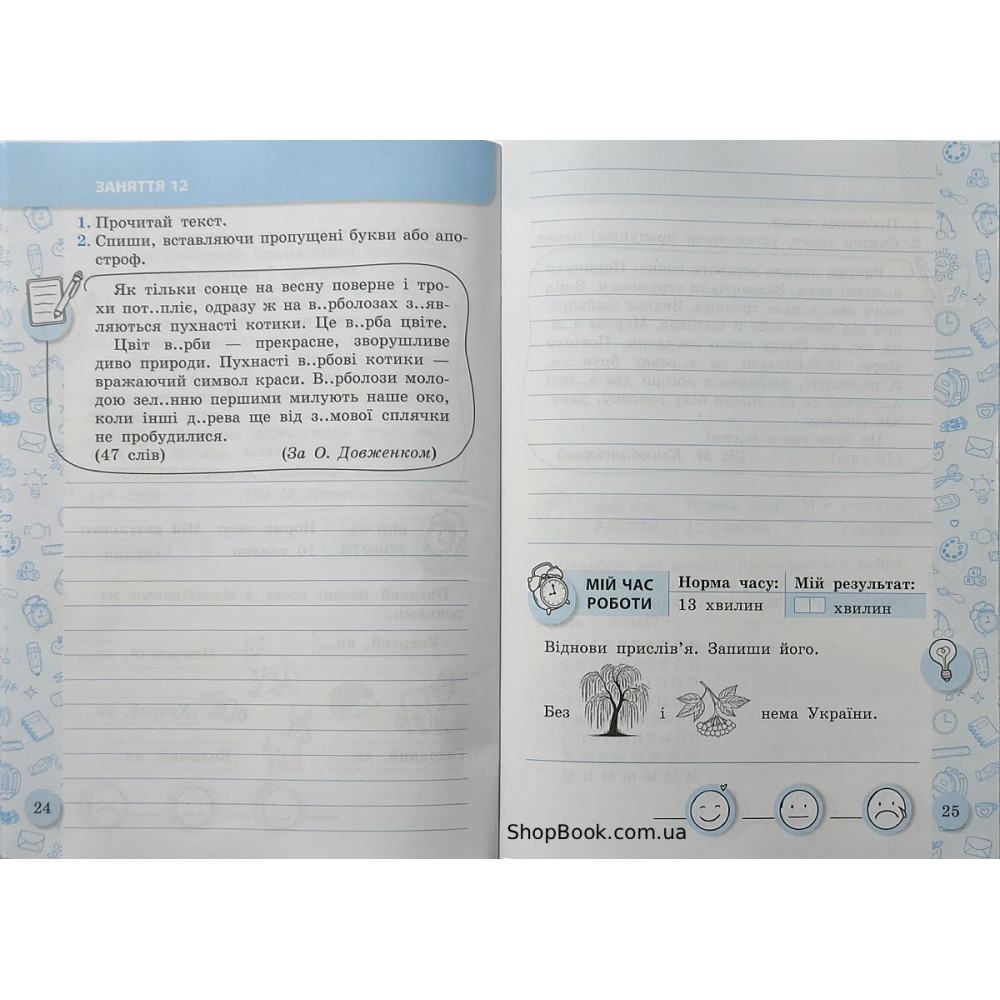 ЗАНЯТТЯ 12
1. Прочитай текст.
2. Спиши, вставляючи пропущені букви або апо-
строф.
Як тільки сонце на весну поверне і тро-
хи пот..пліє, одразу ж на в..рболозах з..яв-
ляються пухнасті котики. Це в..рба цвіте.
Цвіт в..рби — прекрасне, зворушливе
диво природи. Пухнасті в..рбові котики —
вражаючий символ краси. В..рболози моло-
дою зел..нню першими милують наше око,
коли інші д..рева ще від з..мової сплячки
не пробудилися.
(47 слів) (За О. Довженком)
24
МІЙ ЧАС
РОБОТИ
Норма часу:
13 хвилин
Мій результат:
хвилин
Віднови прислів'я. Запиши його.
Без і нема України.
25
ShopBook.com.ua